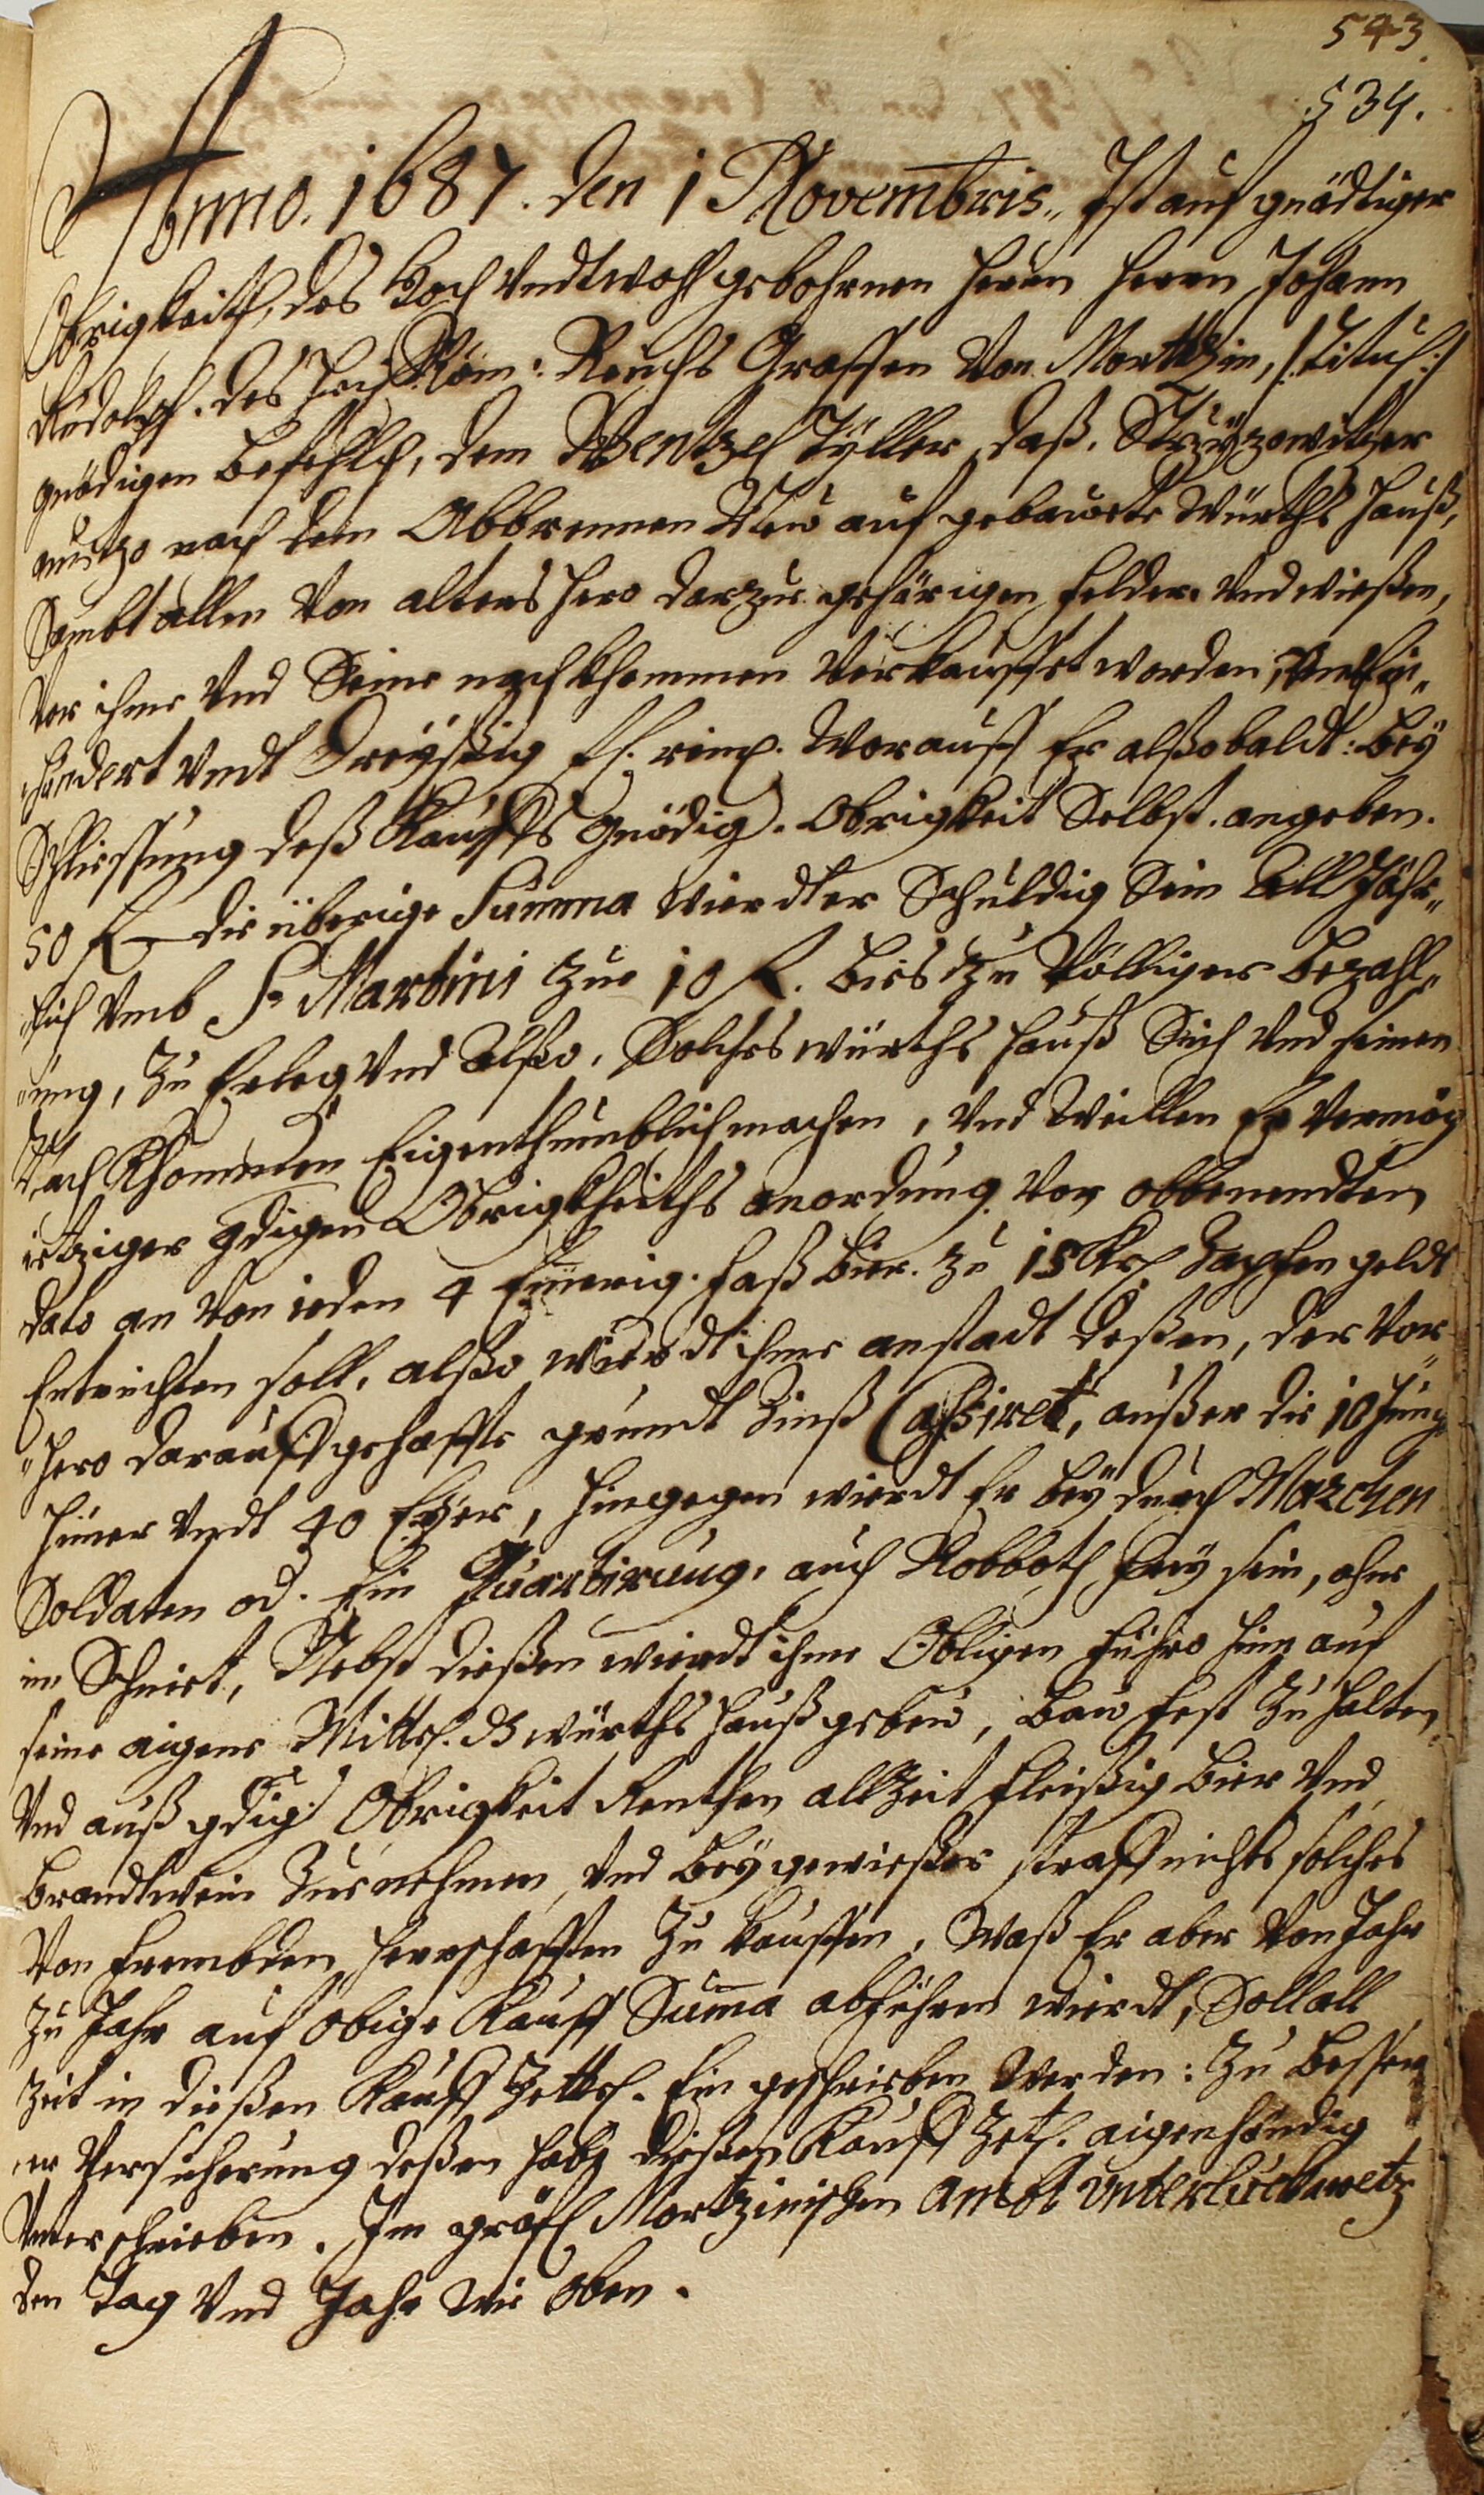 543.
534.
Anno. 1687. den 1 Novembris„ Ist auf gnädtiger
Obrigkeith, des Hoch Undt wohl gebohrnen Herrn Herrn Johann
Rudolph. des Heyl: Röm: Reichs Graffen Von Morttzin, /:Titul:/
gnädigen befehlch, dem Wentzel Tyller, daß. Strzyzowitzer
anietzo nach dem Abbrennen Neu auf gebauete Würths Hauß,
Sambt allen Von alters hero darzue gehörigen felder Und wießen,
Vor ihme Und Seine nachkhommen Verkauffet worden, Umb
hundert Undt Dreyßig fl: rein. Worauff Er alßobaldt: bey
Schliessung deß Kauffs Gnädig. Obrigkeit Selbst. angeben.
50 fl die überige Summa wierdt er Schuldig Sein All Jähr„
„lich Umb S. Martini zue 10 fl. bies zu Völliger bezahl„
„ung, zu Erleg Und Alßo. Solches würths Hauß Sich Und seinen
Nach Khommen Eigenthumblich machen, Und Weillen Er Vermög
ietziger gdigen Obrigkheiths anordung. Von obbenendten
dato an Von ieden 4 Eimerig. Faß bier. zu 15 Kr. Zapfen geldt
Entrichten soll, alßo wierdt ihme anstadt deßen, der Vor„
„hero darauff gehaffte grundt Zinß Cassiret, außer die 10 Jung
Hüner Undt 40 Eyer, Hingegen wierdt Er bey durch Marchen
Soldaten od. Ein Quartirung, auch Robboth frey sein, ohne
im Schniet, Nebst dießen wierdt ihme Obligen führo hin auf
seine aigene Mittel. das würths Hauß gebeu, bau fest zu halten,
Und auß gdig. Obrigkeit Renthen allzeit fleißig bier Und
Brandtwein Zue nehmen, Und bey gewießer straff nichts solches
Von frembden Herrschafften zu kauffen, Waß Er aber Von Jahr
zu Jahr auf obige Kauff Suma abführen wierdt, Soll all
zeit in dießen Kauff Zettel. Ein geschrieben Werden: zu besser„
„er Versicherung deßen habe dießen Kauff Zetl. aigenhändig
Unterschrieben. Im gräfl Mortzinischen Ambt Unterlückawetz
den Tag Und Jahr wie Oben.